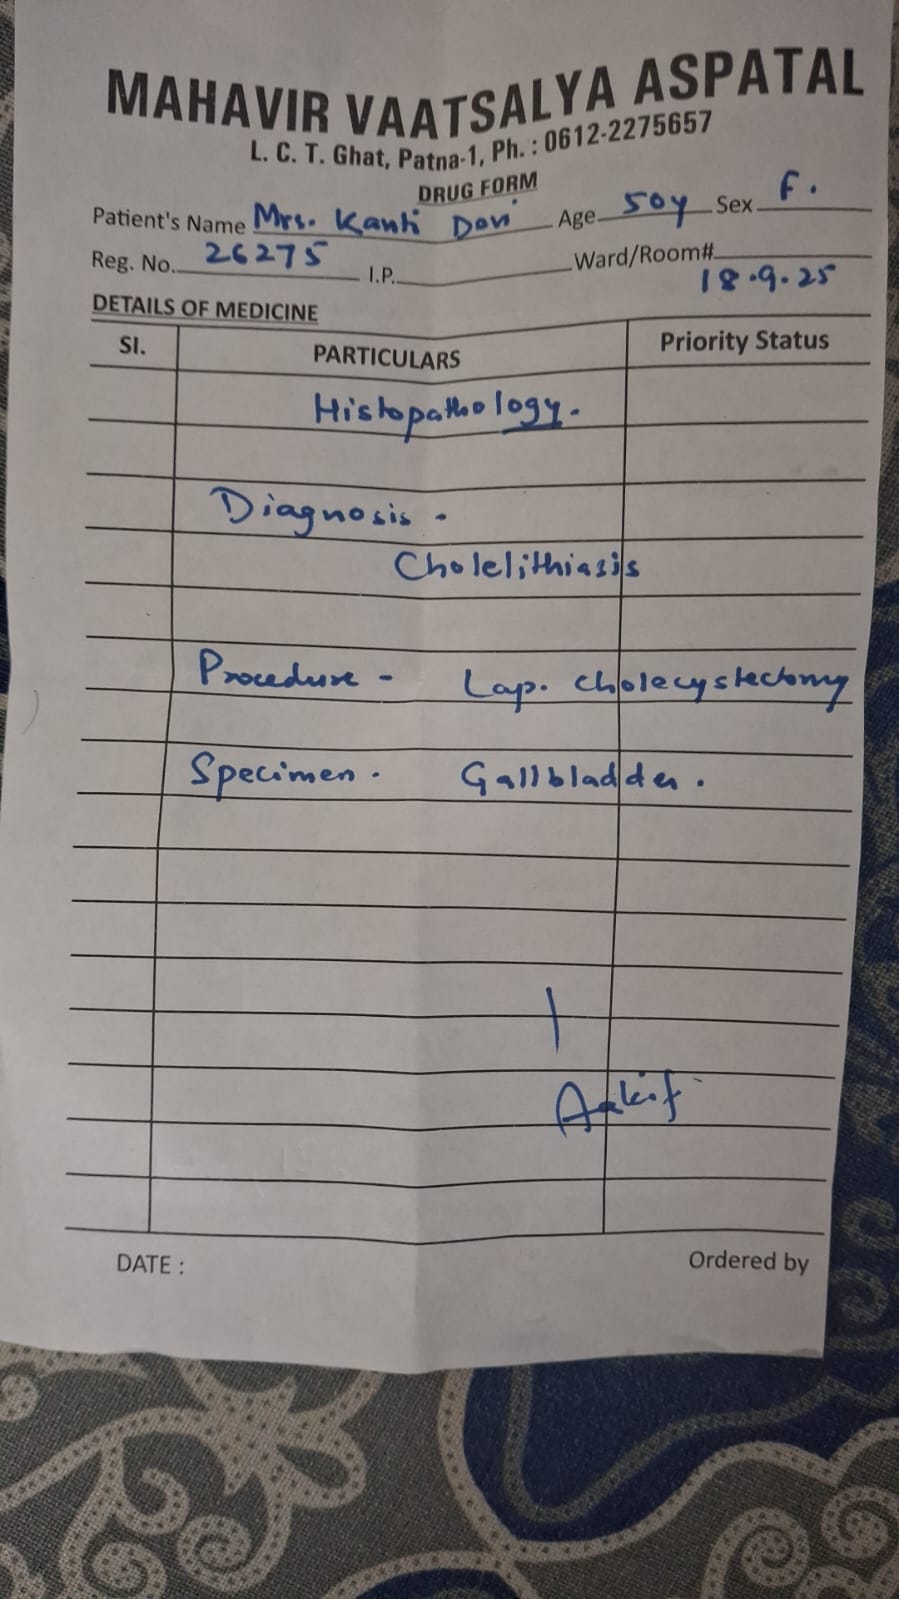 MAHAVIR VAATSALYA ASPATAL
L. C. T. Ghat, Patna-1, Ph. : 0612-2275657
DRUG FORM
Patient's Name Mrs. Kanti Devi Age 50y Sex F.
Reg. No. 26275 I.P. Ward/Room#
18.9.25
DETAILS OF MEDICINE
Sl. PARTICULARS Priority Status
Histopathology.
Diagnosis -
Cholelithiasis
Procedure - Lap. Cholecystectomy
Specimen - Gallbladder.
Aakif
DATE : Ordered by